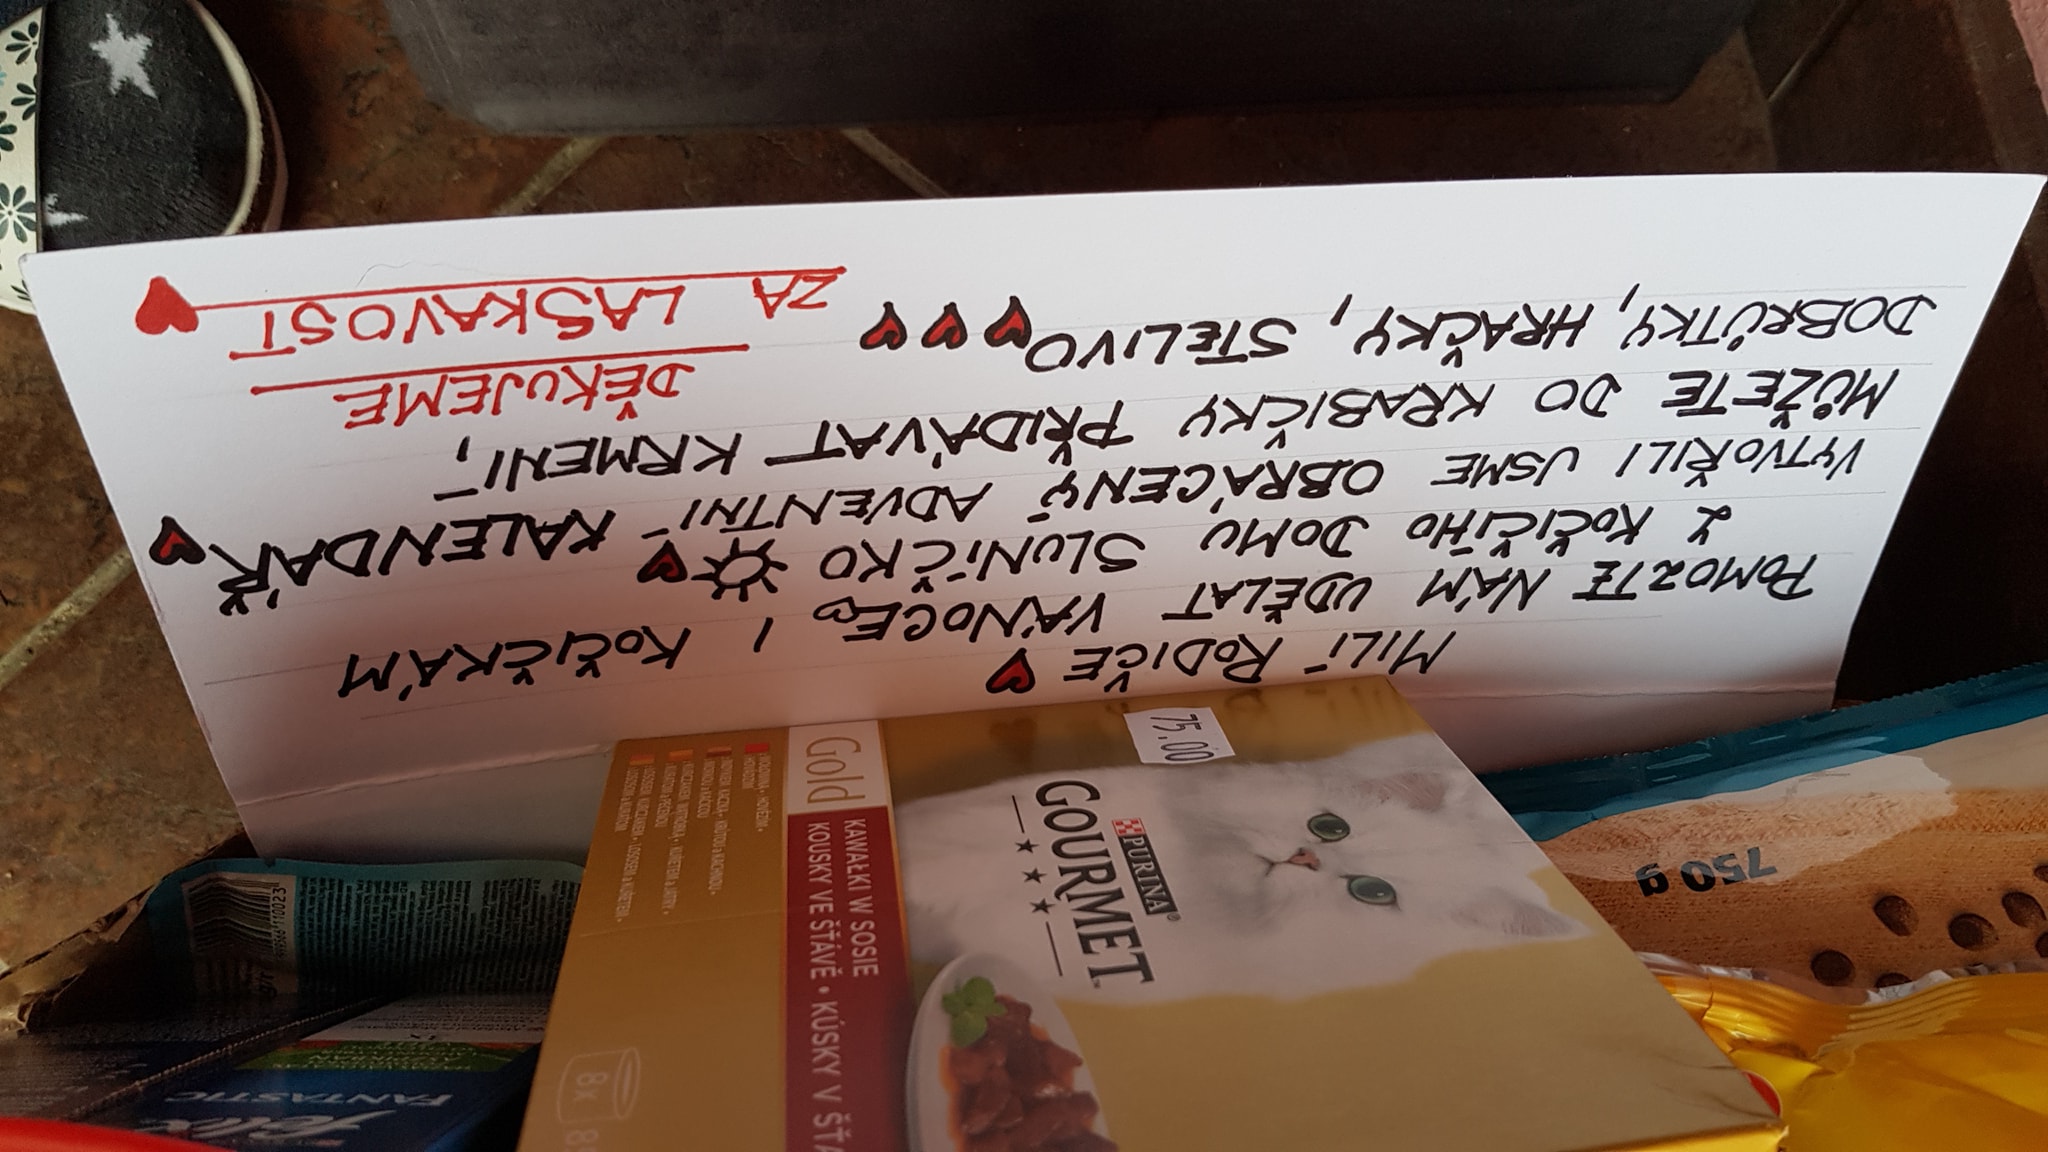 MILÍ RODIČE
POMOZTE NÁM UDĚLAT VÁNOCE I KOČIČKÁM
Z KOČIČÍHO DOMU SLUNÍČKO
VYTVOŘILI JSME OBRÁCENÝ ADVENTNÍ KALENDÁŘ
MŮŽETE DO KRABIČKY PŘIDÁVAT KRMENÍ,
DOBRŮTKY, HRAČKY, STELIVO
DĚKUJEME
ZA LASKAVOST
75.00
PURINA
GOURMET
Gold
KAWAŁKI W SOSIE
KOUSKY VE ŠŤÁVĚ • KÚSKY V ŠŤA
8x
750 g
Felix
FANTASTIC